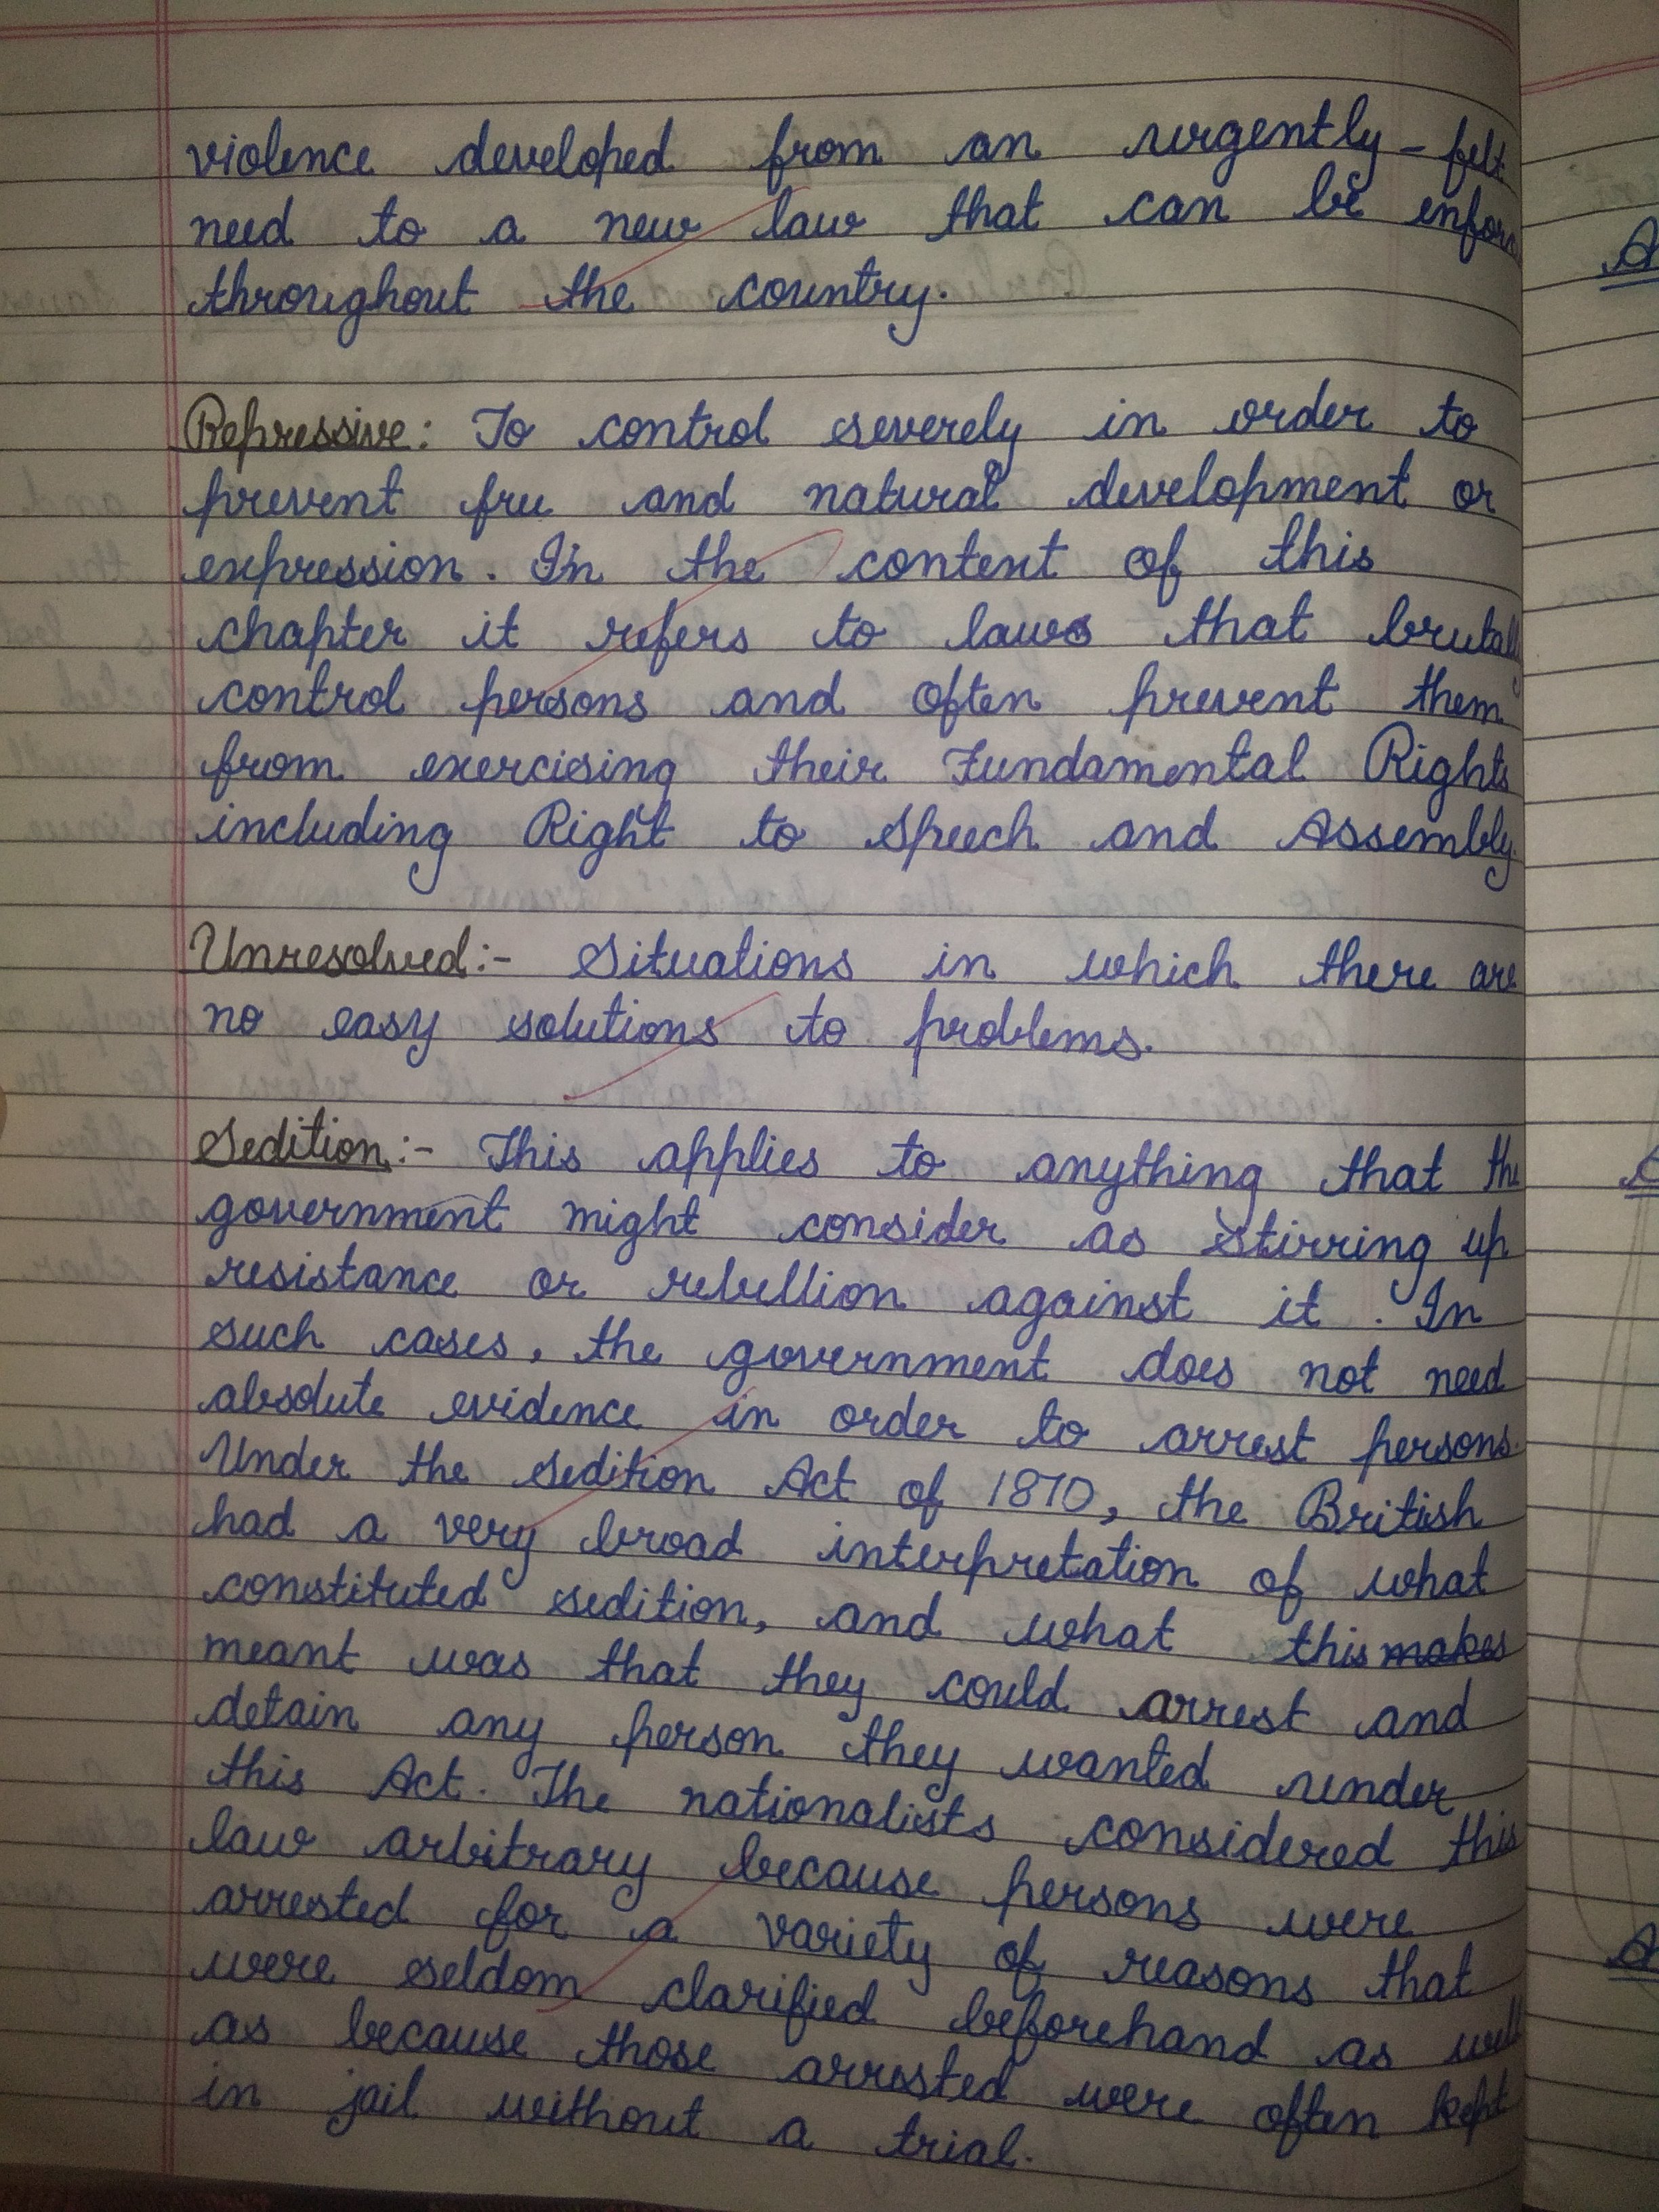 violence developed from an urgently - felt
need to a new law that can be enforc
throughout the country.
Repressive: To control severely in order to
prevent free and natural development or
expression. In the content of this
chapter it refers to laws that brutally
control persons and often prevent them
from exercising their Fundamental Rights
including Right to Speech and Assembly.
Unresolved:- Situations in which there are
no easy solutions to problems.
Sedition:- This applies to anything that the
government might consider as stirring up
resistance or rebellion against it. In
such cases, the government does not need
absolute evidence in order to arrest persons.
Under the Sedition Act of 1870, the British
had a very broad interpretation of what
constituted sedition, and what this makes
meant was that they could arrest and
detain any person they wanted under
this Act. The nationalists considered this
law arbitrary because persons were
arrested for a variety of reasons that
were seldom clarified beforehand as well
as because those arrested were often kept
in jail without a trial.